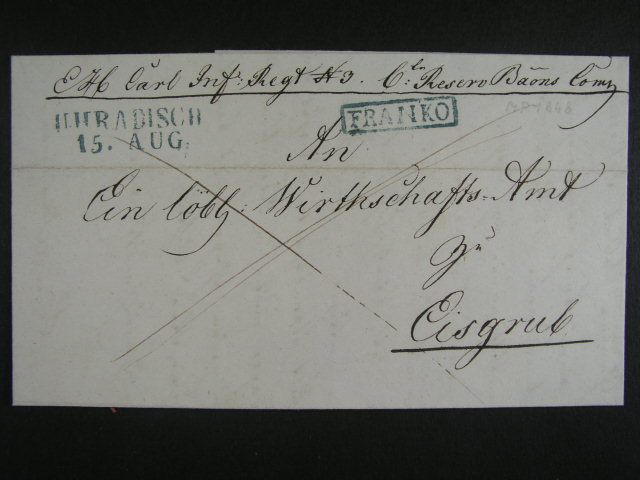 EH Carl Inf: Regt N 3. 6te Reserv Baōns Comp
HHRADISCH
15. AUG.
FRANKO
An
Ein löbl: Wirthschafts-Amt
zu
Eisgrub